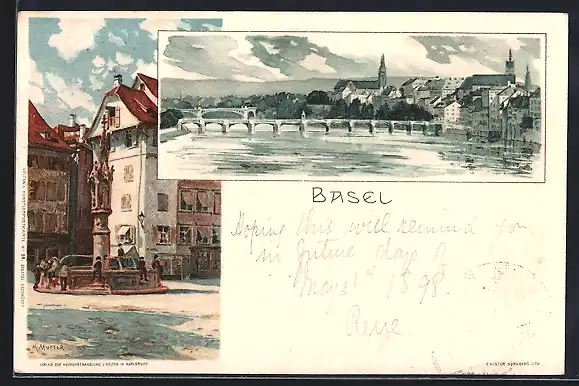 BASEL
Hoping this will remind you
in future day of
May 1st 1898.
Rene.
VELTEN'S KÜNSTLERPOSTKARTE Nº 56
VERLAG DER HOFKUNSTHANDLUNG J. VELTEN IN KARLSRUHE
E. NISTER NÜRNBERG LITH.